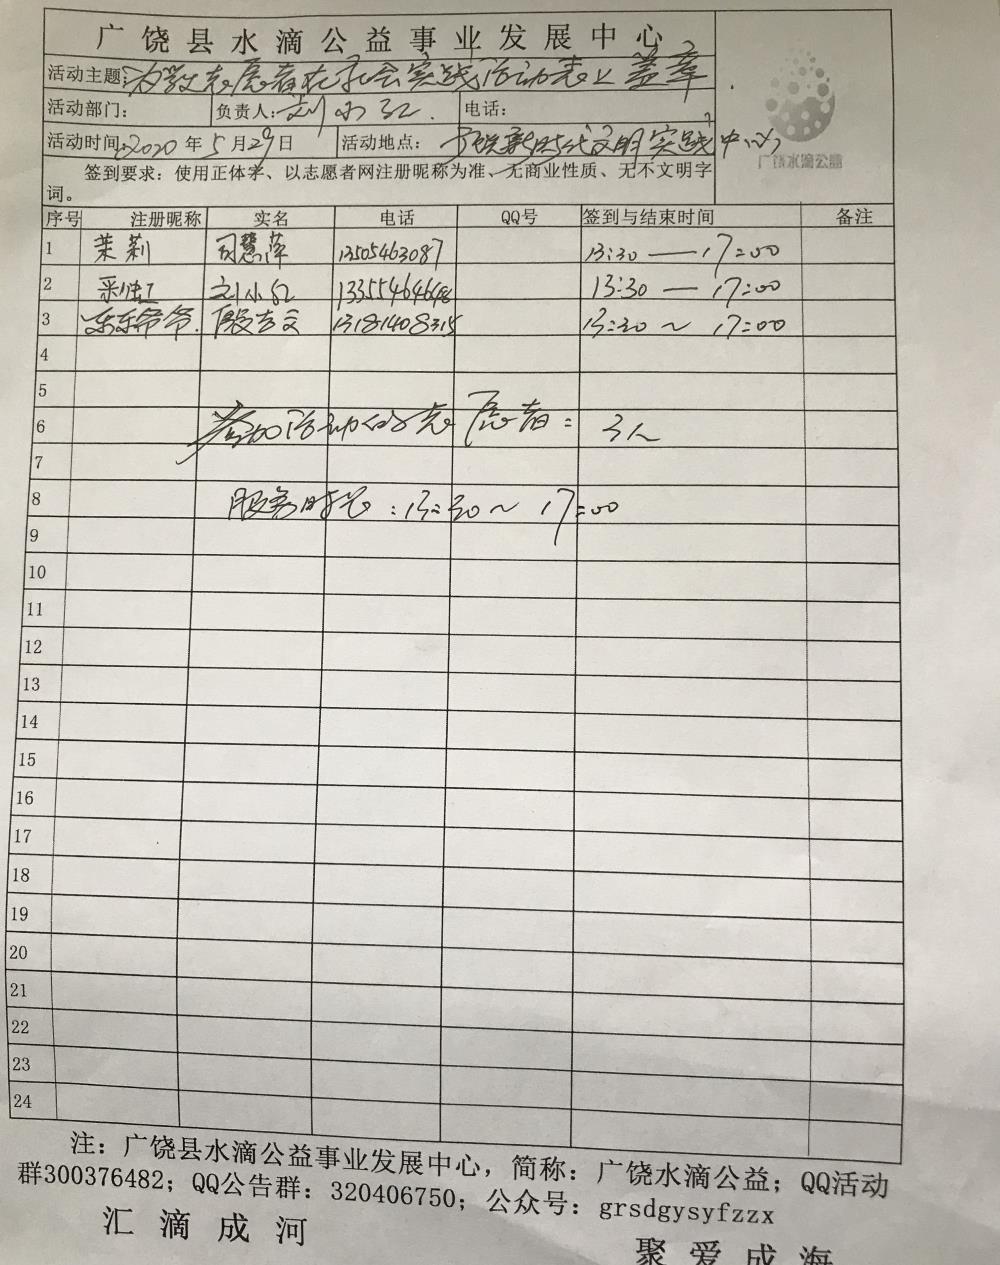 广饶县水滴公益事业发展中心
活动主题: 为学生志愿者在社会实践活动表上盖章.
活动部门: 负责人: 刘小红. 电话:
活动时间: 2020年5月29日 活动地点: 广饶新时代文明实践中心
广饶水滴公益
签到要求: 使用正体字、以志愿者网注册昵称为准、无商业性质、无不文明字
词。
序号 注册昵称 实名 电话 QQ号 签到与结束时间 备注
1 茉莉 司慧萍 13505463087 13:30 — 17:00
2 刘小红 13355464648 13:30 — 17:00
3 东东爷爷. 殷吉文 13181408315 13:30 ~ 17:00
4
5
6 参加活动的志愿者: 3人
7
8 服务时长: 13:30 ~ 17:00
9
10
11
12
13
14
15
16
17
18
19
20
21
22
23
24
注: 广饶县水滴公益事业发展中心, 简称: 广饶水滴公益; QQ活动
群300376482; QQ公告群: 320406750; 公众号: grsdgysyfzzx
汇滴成河
聚爱成海